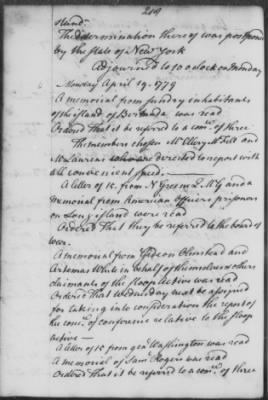 214
stand.
The determination thereof was postponed
by the state of New York
Adjourned to 10 o Clock on Monday
Monday April 19. 1779
A memorial from sundry inhabitants
of the island of Bermuda was read
Ordered That it be referred to a comee. of three
The members chosen Mr Ellery Mr Fell and
Mr Laurens who are directed to report with
all convenient speed.
A letter of 16 from N Greene Q. M G and a
memorial from American officers prisoners
on Long island were read
Ordered That they be referred to the board of
war.
A memorial from Gideon Olmstead and
Artemas White in behalf of themselves & others
claimants of the sloop Active was read
Ordered That Wednesday next be assigned
for taking into consideration the report of
the comee. of conference relative to the sloop
active
A letter of 15 from genl Washington was read
A memorial of Saml. Rogers was read
Ordered That it be referred to a comee. of three